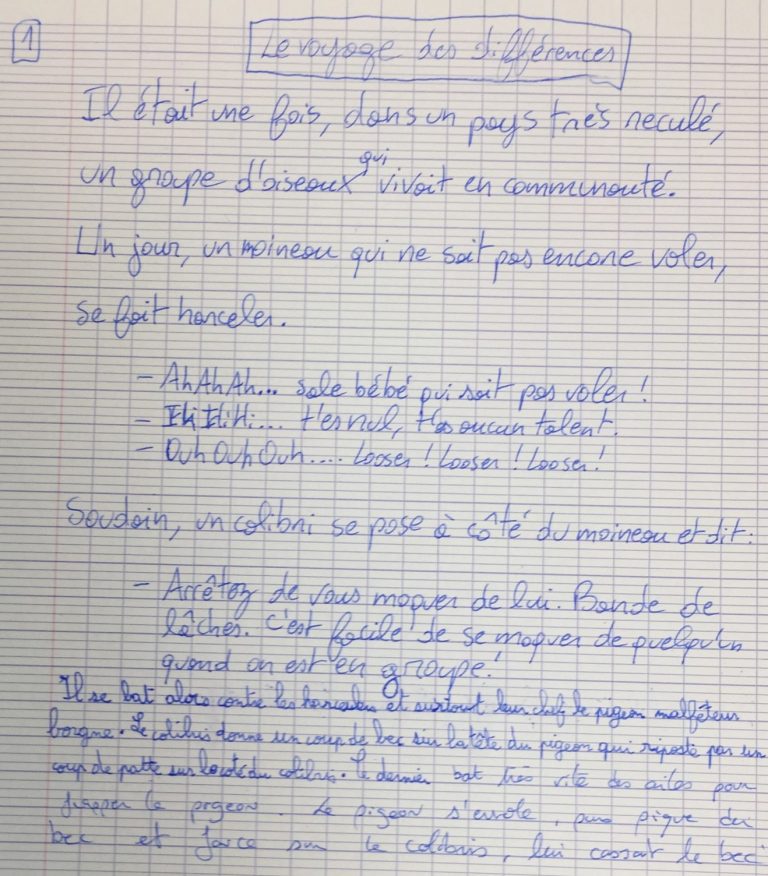 1
Le voyage des différences
Il était une fois, dans un pays très reculé,
un groupe d'oiseaux qui vivait en communauté.
Un jour, un moineau qui ne sait pas encore voler,
se fait harceler.
- Ah Ah Ah... sale bébé qui sait pas voler !
- Hi Hi Hi.... t'es nul, t'as aucun talent.
- Ouh Ouh Ouh.... Looser ! Looser ! Looser !
Soudain, un colibri se pose à côté du moineau et dit :
- Arrêtez de vous moquer de lui. Bande de
lâches. C'est facile de se moquer de quelqu'un
quand on est en groupe !
Il se bat alors contre les harceleurs et surtout leur chef le pigeon malfêteur
borgne. Le colibris donne un coup de bec sur la tête du pigeon qui riposte par un
coup de patte sur le coté du colibris. Ce dernier bat très vite des ailes pour
frapper le pigeon. Le pigeon s'envole, puis pique du
bec et fonce sur le colibris, lui cassant le bec